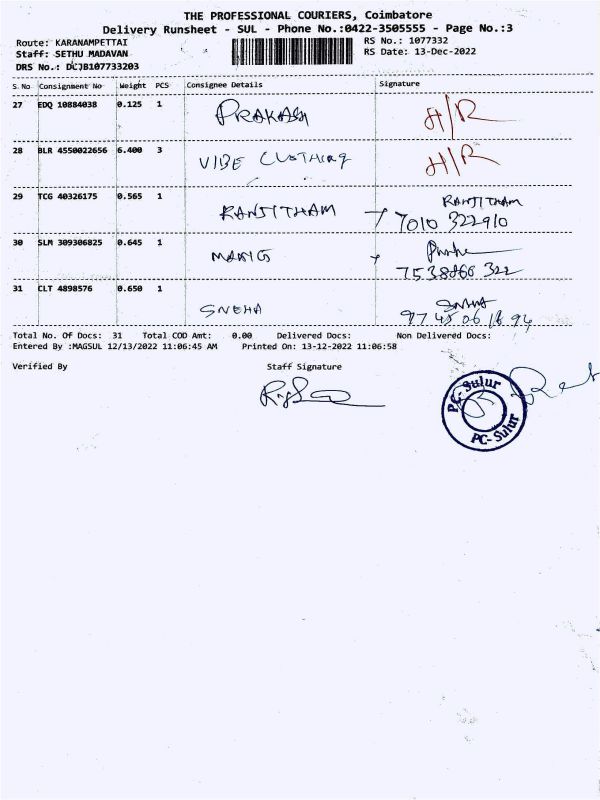 THE PROFESSIONAL COURIERS, Coimbatore
Delivery Runsheet - SUL - Phone No.:0422-3505555 - Page No.:3
Route: KARANAMPETTAI
RS No.: 1077332
Staff: SETHU MADAVAN
RS Date: 13-Dec-2022
DRS No.: DLJB107733203
S.No Consignment No Weight PCS Consignee Details Signature
27 EDQ 10884038 0.125 1 PRAKASH H/R
28 BLR 4550022656 6.400 3 VIBE CLOTHING H/R
29 TCG 40326175 0.565 1 RANJITHAM RANJITHAM
7010 322910
30 SLM 309306825 0.645 1
7538866 322
31 CLT 4898576 0.650 1 SNEHA SNEHA
97 45 06 18 94
Total No. Of Docs: 31 Total COD Amt: 0.00 Delivered Docs: Non Delivered Docs:
Entered By :MAGSUL 12/13/2022 11:06:45 AM Printed On: 13-12-2022 11:06:58
Verified By Staff Signature
PC-Sulur
PC-Sulur